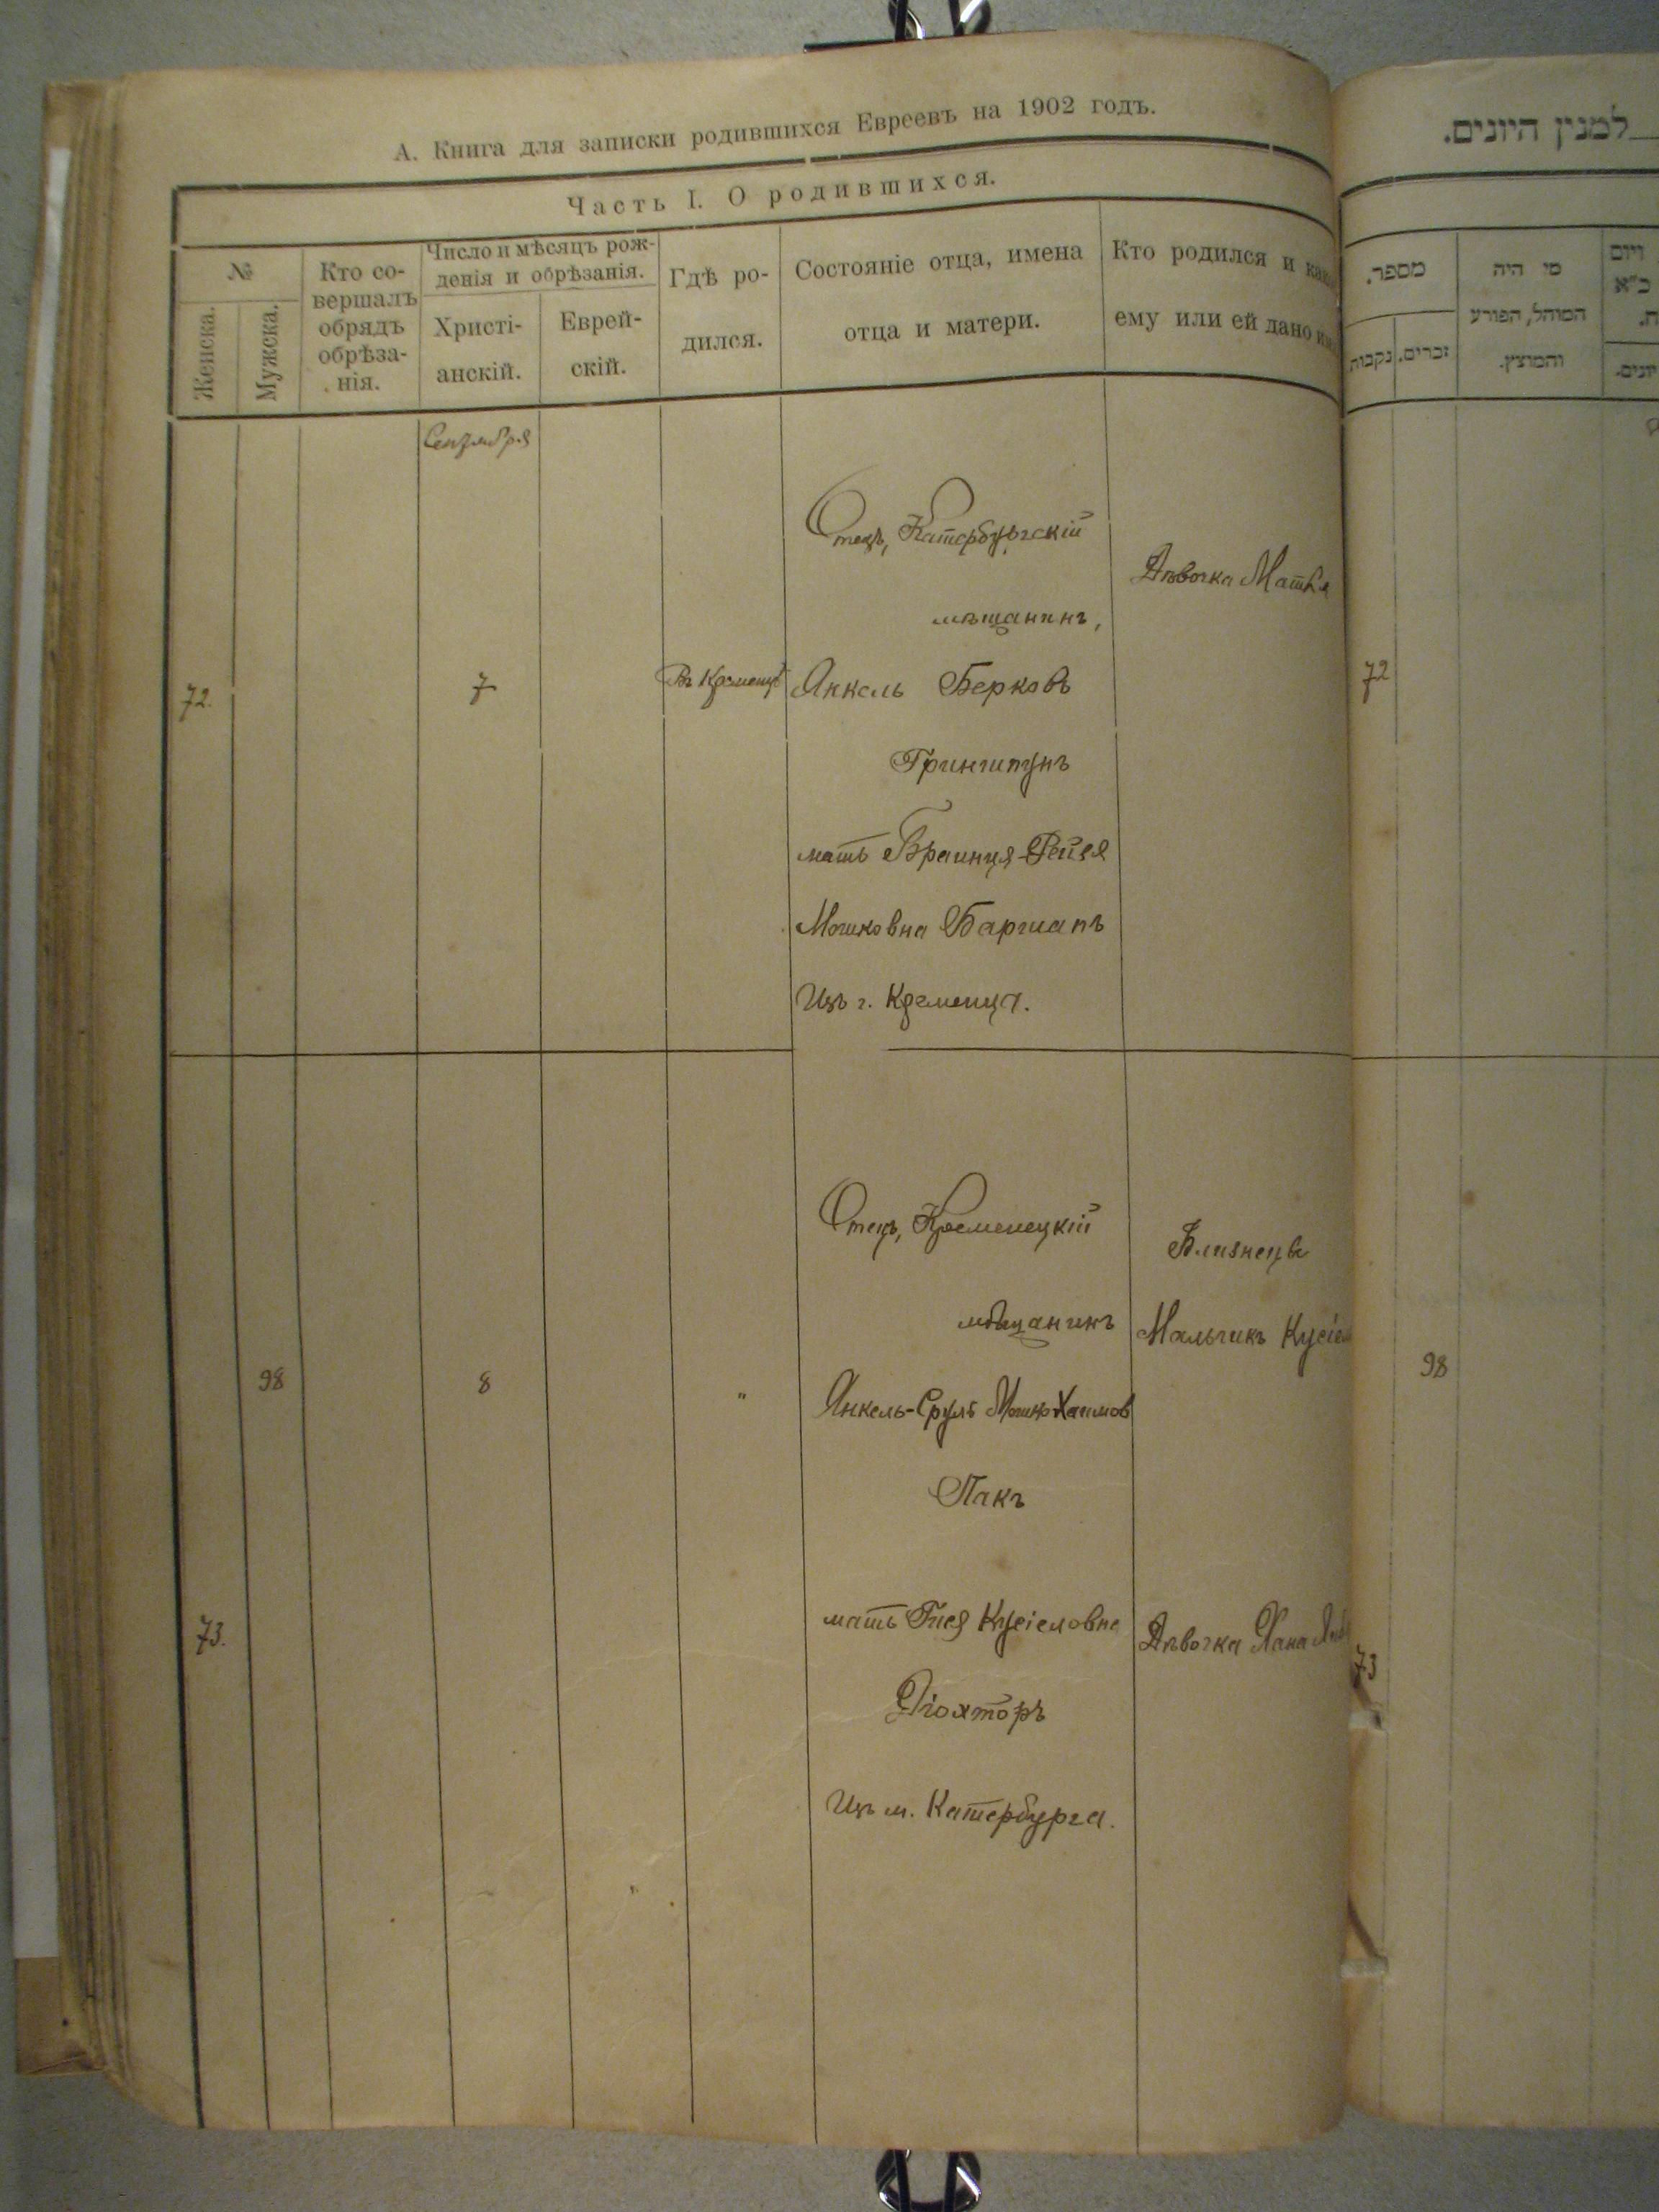 А. Книга для записки родившихся Евреевъ на 1902 годъ.
Часть I. О родившихся.
№
Женска.
Мужска.
Кто со-
вершалъ
обрядъ
обрѣза-
нія.
Число и мѣсяцъ рож-
денія и обрѣзанія.
Христі-
анскій.
Еврей-
скій.
Гдѣ ро-
дился.
Состояніе отца, имена
отца и матери.
Кто родился и
ему или ей дано
Сентября
72.
7
Въ Кременцѣ
Отецъ, Катербургскій
мѣщанинъ,
Янкель Берковъ
Гринштунъ
мать Браинця-Рейзя
Мошковна Баршапъ
Изъ г. Кременца.
Дѣвочка
98
8
"
73.
Отецъ, Кременецкій
мѣщанинъ
Янкель-Сруль Мошко Хаимов
Пакъ
мать Гися Кусіеловна
Изъ м. Катербурга.
Близнецы
Мальчикъ
Дѣвочка Хана
למנין היונים.
מספר.
זכרים.
נקבות
מי היה
המוהל, הפורע
והמוצץ.
72
98
73